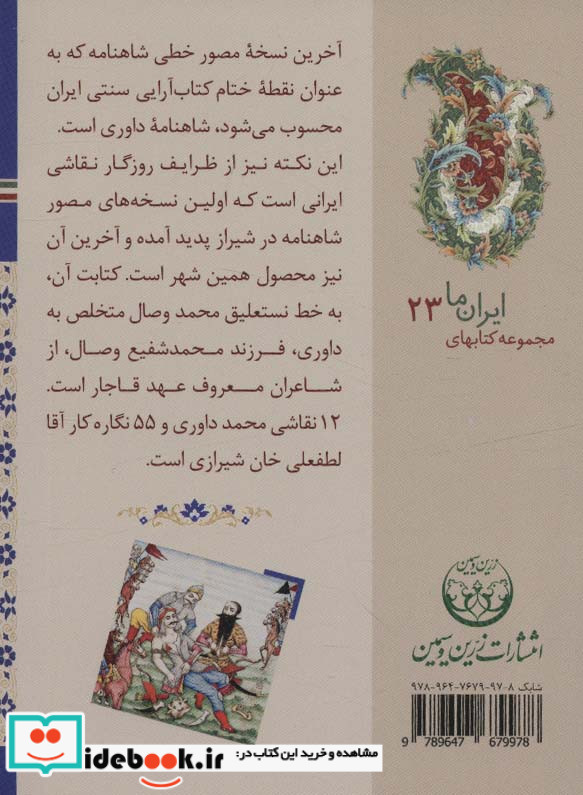 آخرین نسخهٔ مصور خطی شاهنامه که به
عنوان نقطهٔ ختام کتاب‌آرایی سنتی ایران
محسوب می‌شود، شاهنامهٔ داوری است.
این نکته نیز از ظرایف روزگار نقاشی
ایرانی است که اولین نسخه‌های مصور
شاهنامه در شیراز پدید آمده و آخرین آن
نیز محصول همین شهر است. کتابت آن،
به خط نستعلیق محمد وصال متخلص به
داوری، فرزند محمدشفیع وصال، از
شاعران معروف عهد قاجار است.
۱۲ نقاشی محمد داوری و ۵۵ نگاره کار آقا
لطفعلی خان شیرازی است.
ایران ما ۲۳
مجموعه کتابهای
زرین و سیمین
انتشارات زرین و سیمین
شابک ۸-۹۷-۷۶۷۹-۹۶۴-۹۷۸
9 789647 679978
idebook.ir
مشاهده و خرید این کتاب در: